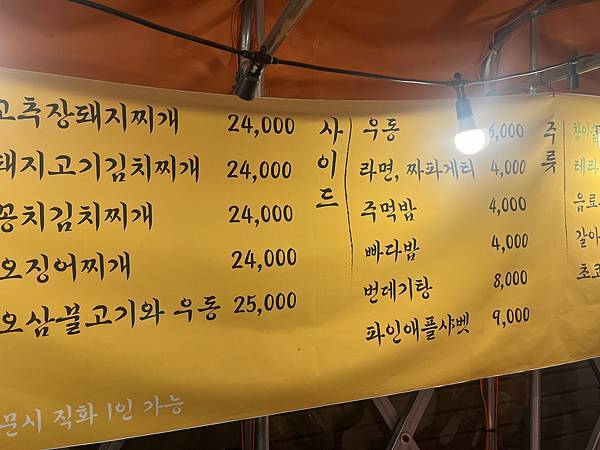 고추장돼지찌개 24,000
돼지고기김치찌개 24,000
꽁치김치찌개 24,000
오징어찌개 24,000
오삼불고기와 우동 25,000
문시 직화 1인 가능
사이드
우동 6,000
라면, 짜파게티 4,000
주먹밥 4,000
빠다밥 4,000
번데기탕 8,000
파인애플샤벳 9,000
주류
참이슬
테라
음료
갈아
초코